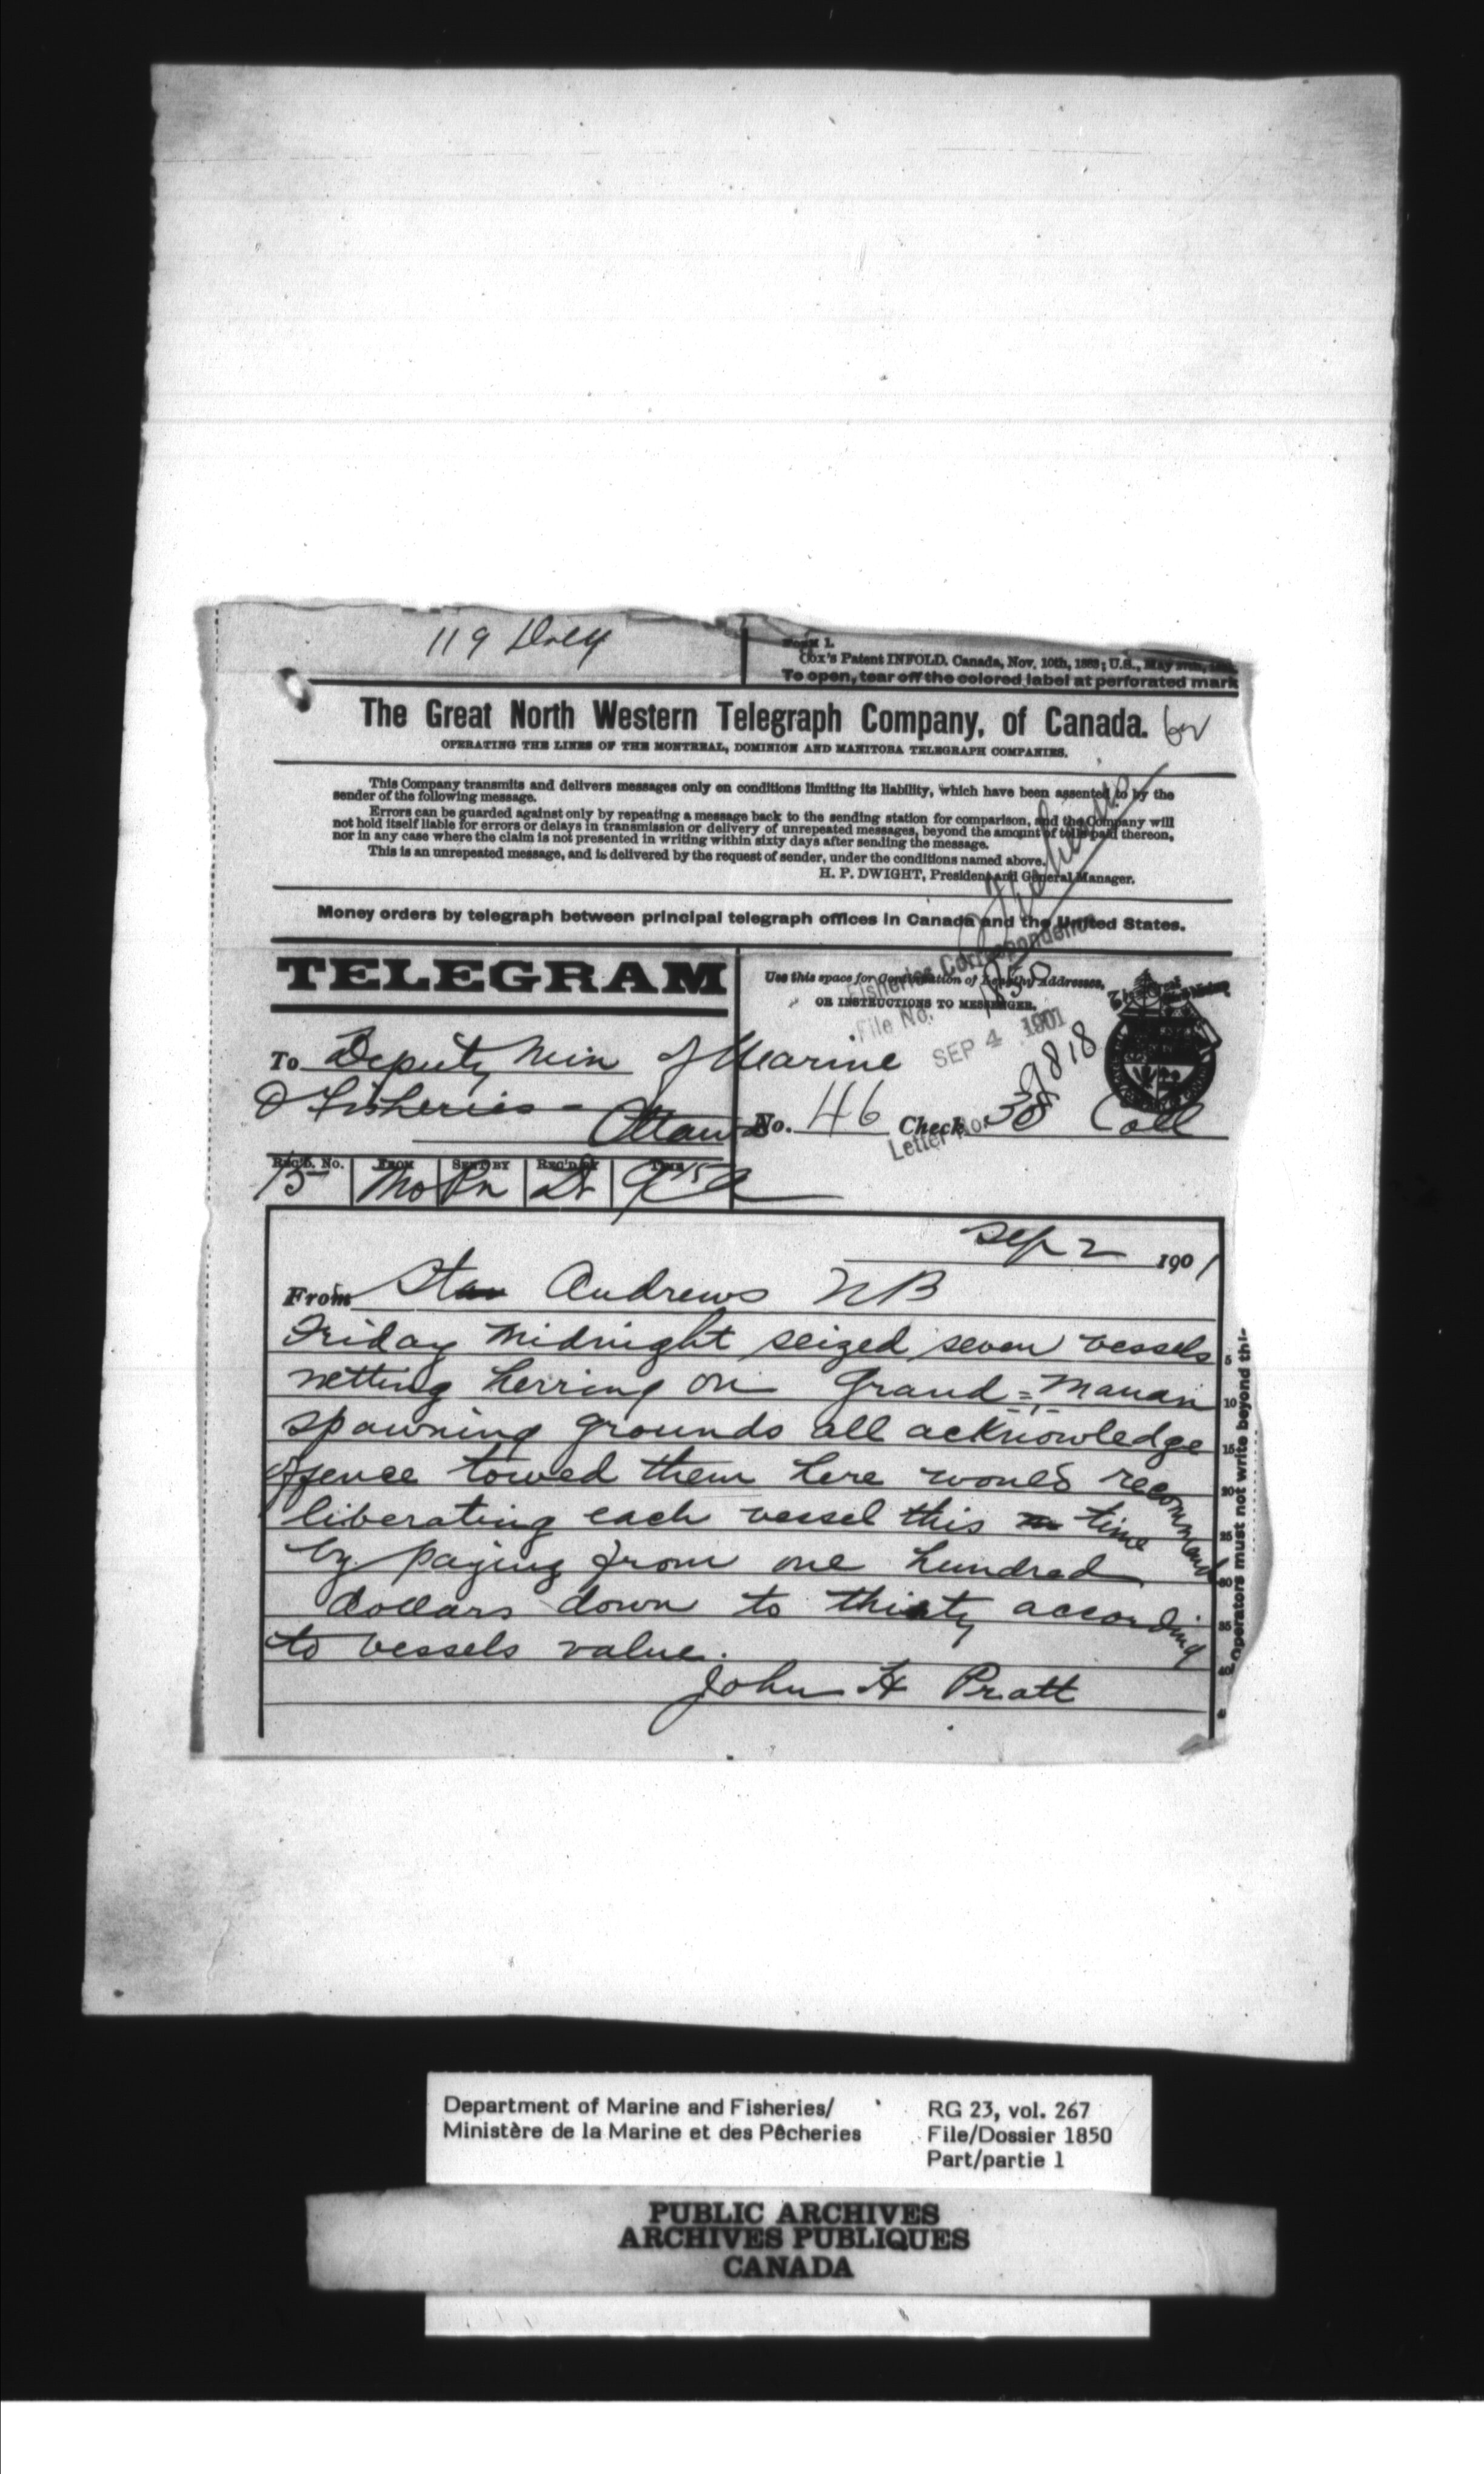 119
FORM 1.
Cox's Patent INFOLD. Canada, Nov. 10th, 1883; U.S., May
To open, tear off the colored label at perforated mark
The Great North Western Telegraph Company, of Canada.
OPERATING THE LINES OF THE MONTREAL, DOMINION AND MANITOBA TELEGRAPH COMPANIES.
This Company transmits and delivers messages only on conditions limiting its liability, which have been assented to by the
sender of the following message.
Errors can be guarded against only by repeating a message back to the sending station for comparison, and the Company will
not hold itself liable for errors or delays in transmission or delivery of unrepeated messages, beyond the amount of tolls paid thereon,
nor in any case where the claim is not presented in writing within sixty days after sending the message.
This is an unrepeated message, and is delivered by the request of sender, under the conditions named above.
H. P. DWIGHT, President and General Manager.
Money orders by telegraph between principal telegraph offices in Canada and the United States.
TELEGRAM
Use this space for Continuation of Lengthy Addresses,
OR INSTRUCTIONS TO MESSENGER.
Fisheries Correspondence
File No. 1850
SEP 4 1901
Letter No. 9818
To Deputy Min of Marine
& Fisheries - Ottawa
No. 46 Check 38 Coll
REC'D. No. FROM SENT BY REC'D BY TIME
15 Mo Rn
Sep 2 1901
From St Andrews NB
Friday midnight seized seven vessels
netting herring on Grand = Manan
spawning grounds all acknowledge
offence towed them here would recommend
liberating each vessel this time
by paying from one hundred
dollars down to thirty according
to vessels value.
John H Pratt
5
10
15
20
25
30
35
40
Operators must not write beyond thi-
Department of Marine and Fisheries/
Ministère de la Marine et des Pêcheries
RG 23, vol. 267
File/Dossier 1850
Part/partie 1
PUBLIC ARCHIVES
ARCHIVES PUBLIQUES
CANADA